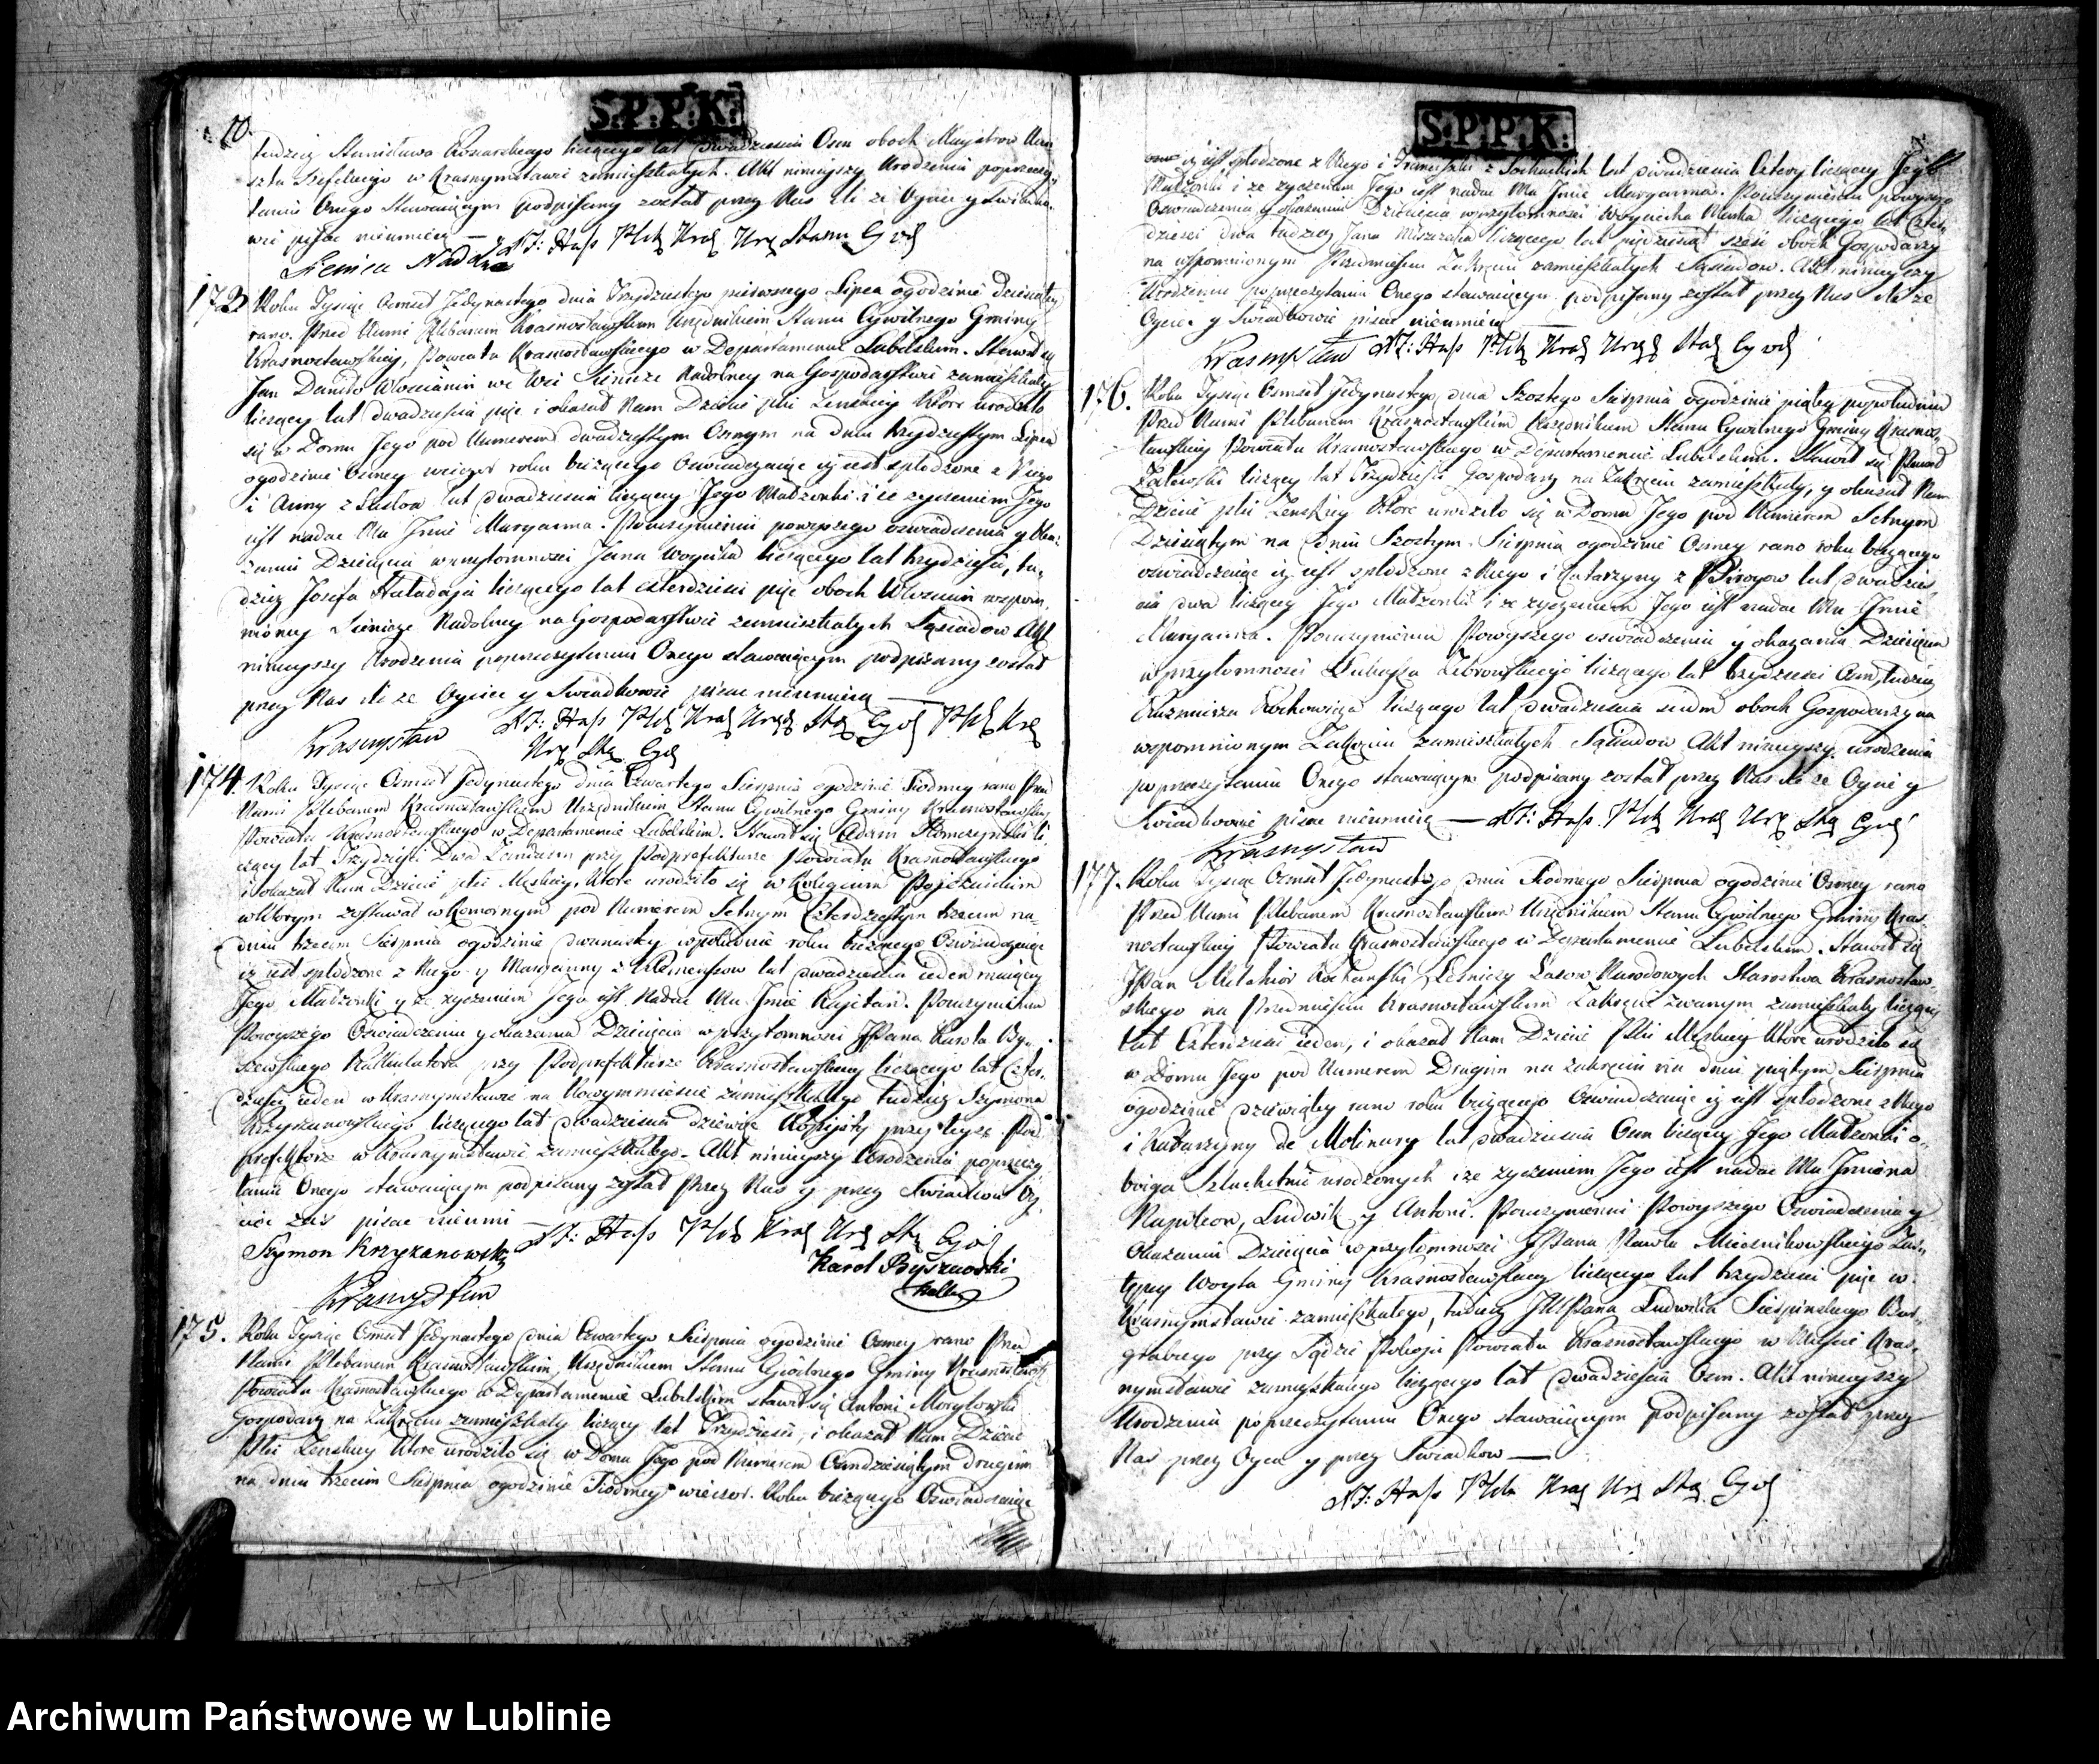 S.P.P.K:
70
tudzież Stanisława liczącego lat Dwadzieścia Osm oboch Maystrow Kun
sztu w Krasnymstawie zamieszkałych. Akt ninieyszy Urodzenia poprzeczy
taniu Onego Stawaiącym podpisany został przez Nas Ile że Oyciec y Swiadko
wie pisac nieumieią — X: Hass Pleb Kras Urz Stanu Cyvil
Siennica Nadolna
173 Roku Tysiąc Osmset Jedynastego dnia Trzydziestego pierwszego Lipca ogodzinie dziesiątey
rano. Przed Nami Plebanem Krasnostawskim Urzędnikiem Stanu Cywilnego Gminy
Krasnostawskiey, Powiatu Krasnostawskiego w Departamencie Lubelskim. Stawił się
Jan Daniło Włoscianin we Wsi Siennice Nadolney na Gospodarstwie zamieszkały
liczący lat dwadzieścia pięć i okazał Nam Dziecie płci Zenskiey które urodziło
się w Domu Jego pod Numerem dwadziestym Osmym na dniu trzydziestym Lipca
ogodzinie Osmey wieczor roku bieżącego Oswiadczaiąc iż iest spłodzone z Niego
i Anny z lat Dwadzieścia liczący Jego Małżonki i że życzeniem Jego
iest nadac Mu Jmie Maryanna. Pouczynieniu powyższego oswiadczenia y Oka-
zaniu Dziecięcia wprzytomnosci Jana Woyciła liczącego lat trzydzieści, tu-
dzież Jozefa liczącego lat czterdzieści pięć oboch Włoscian wspom-
nioney Siennicy Nadolney na Gospodarstwie zamieszkałych Sąsiadow Akt
ninieyszy Urodzenia poprzeczytaniu Onego stawaiącym podpisany został
przez Nas ile że Oyciec y Swiadkowie pisac nieumieią —
Krasnystaw X: Hass Pleb Kras Urzęd Sta Cyvil Pleb Kra
Urz Sta Cyvil
174. Roku Tysiąc Osmset Jedynastego dnia Czwartego Sierpnia ogodzinie Siodmey rano Przed
Nami Plebanem Krasnostawskim Urzędnikiem Stanu Cywilnego Gminy Krasnostawskiey
Powiatu Krasnostawskiego w Departamencie Lubelskim. Stawił się Adam li-
czący lat Trzydzieści Dwa Zandarm przy Podprefekturze Powiatu Krasnostawskiego
i okazał Nam Dziecie płci Męskiey, które urodziło się w Kolegium Pojezuickim
wktorym zostawał wKomornym pod Numerem Setnym Czterdziestym trzecim na
dniu trzecim Sierpnia ogodzinie dwunastey wpołudnie roku bieżącego Oswiadczaiąc
iż iest spłodzone z Niego y Maryanny z Klemensow lat dwadzieścia ieden maiącey
Jego Małżonki y że życzeniem Jego iest Nadac Mu Jmie Kajetan. Pouczynieniu
Powyższego Oswiadczenia y okazania Dziecięcia wprzytomnosci JPana Karola By-
szewskiego Kalkulatora przy Podprefekturze Krasnostawskiey liczącego lat Czter-
dzieści ieden w Krasnymstawie na Nowymmiescie zamieszkałego Tudzież Szymona
Krzyżanowskiego liczącego lat dwadzieścia dziewięć Kopijsty przy teyże Pod
prefektorze w Krasnymstawie zamieszkałego. Akt ninieyszy Urodzenia poprzeczy
taniu Onego stawaiącym podpisany został Przez Nas y przez Swiadkow Oy-
ciec zas pisac nieumi — X: Hass Pleb Kras Urz Sta Cyvil
Szymon Krzyżanowski
Karol Byszewski
Kalk
Krasnystaw
175. Roku Tysiąc Osmset Jedynastego dnia Czwartego Sierpnia ogodzinie Osmey rano Przed
Nami Plebanem Krasnostawskim, Urzędnikiem Stanu Cywilnego Gminy Krasnostawsk
Powiatu Krasnostawskiego w Departamencie Lubelskim stawił się Antoni
Gospodarz na Zakręciu zamieszkały liczący lat Trzydzieści, i okazał Nam Dziecie
Płci Zenskiey które urodziło się w Domu Jego pod Numerem Osmdziesiątym drugim
na dniu trzecim Sierpnia ogodzinie Siodmey wieczor. Roku bieżącego Oswiadczaiąc
S.P.P.K:
iż iest spłodzone z Niego i Franciszki z lat dwadzieścia Cztery liczącey Jego
Małżonki i że życzeniem Jego iest nadac Mu Jmie Maryanna. Pouczynieniu powyższego
Oswiadczenia y okazaniu Dziecięcia wprzytomnosci Woyciecha liczącego lat Czter-
dzieści dwa tudzież Jana liczącego lat pięćdziesiąt sześć oboch Gospodarzy
na wspomnionym Przedmiesciu Zakręciu zamieszkałych Sąsiadow. Akt ninieyszy
Urodzenia poprzeczytaniu Onego stawaiącym podpisany został przez Nas Ile że
Oyciec y Swiadkowie pisac nieumieią —
Krasnystaw X: Hass Pleb Kras Urzęd Sta Cyvil
176. Roku Tysiąc Osmset Jedynastego dnia Szostego Sierpnia ogodzinie piątey popołudniu
Przed Nami Plebanem Krasnostawskim Urzędnikiem Stanu Cywilnego Gminy Krasnos-
tawskiey Powiatu Krasnostawskiego w Departamencie Lubelskim. Stawił się Paweł
Zalewski liczący lat Trzydzieści, Gospodarz na Zakręciu zamieszkały, y okazał Nam
Dziecie płci Zenskiey które urodziło się w Domu Jego pod Numerem Setnym
Dziesiątym na dniu Szostym Sierpnia ogodzinie Osmey rano roku bieżącego
oswiadczaiąc iż iest spłodzone z Niego i Katarzyny z lat Dwadzies-
cia dwa liczącey Jego Małżonki i że życzeniem Jego iest nadac Mu Jmie
Maryanna. Pouczynieniu Powyższego oswiadczenia y okazania Dziecięcia
wprzytomnosci liczącego lat trzydzieści Osm, tudzież
Kazmirza liczącego lat Dwadzieścia siedm oboch Gospodarzy na
wspomnionym Zakręciu zamieszkałych Sąsiadow Akt ninieyszy urodzenia
poprzeczytaniu Onego stawaiącym podpisany został przez Nas ile że Oyciec y
Swiadkowie pisac nieumieią — X: Hass Pleb Kras Urz Sta Cyvil
Krasnystaw
177. Roku Tysiąc Osmset Jedynastego dnia Siodmego Sierpnia ogodzinie Osmey rano
Przed Nami Plebanem Krasnostawskim Urzędnikiem Stanu Cywilnego Gminy Kras-
nostawskiey Powiatu Krasnostawskiego w Departamencie Lubelskim. Stawił się
JPan Melchior Leśniczy Lasow Narodowych Starostwa Krasnostaw-
skiego na Przedmiesciu Krasnostawskim Zakręcie zwanym zamieszkały liczący
lat Czterdzieści ieden, i okazał Nam Dziecie Płci Męskiey które urodziło się
w Domu Jego pod Numerem Drugim na Zakręciu na dniu piątym Sierpnia
ogodzinie dziewiątey rano roku bieżącego Oswiadczaiąc iż iest spłodzone z Niego
i Katarzyny de Molinary lat dwadzieścia Osm liczącey Jego Małżonki o-
boyga Szlachetnie urodzonych i że życzeniem Jego iest nadac Mu Jmiona
Napoleon, Ludwik y Antoni. Pouczynieniu Powyższego Oswiadczenia y
Okazaniu Dziecięcia wprzytomnosci JPana Pawła Miecznikowskiego Zas-
tępcy Woyta Gminy Krasnostawskiey liczącego lat trzydzieści pięć w
Krasnymstawie zamieszkałego, tudzież JPana Ludwika Sierpińskiego
przy Sądzie Pokoju Powiatu Krasnostawskiego w Miescie Kras-
nymstawie zamieszkałego liczącego lat Dwadzieścia Osm. Akt ninieyszy
Urodzenia poprzeczytaniu Onego stawaiącym podpisany został przez
Nas przez Oyca y przez Swiadkow —
X: Hass Pleb Kras Urz Sta Cyvil
Archiwum Państwowe w Lublinie